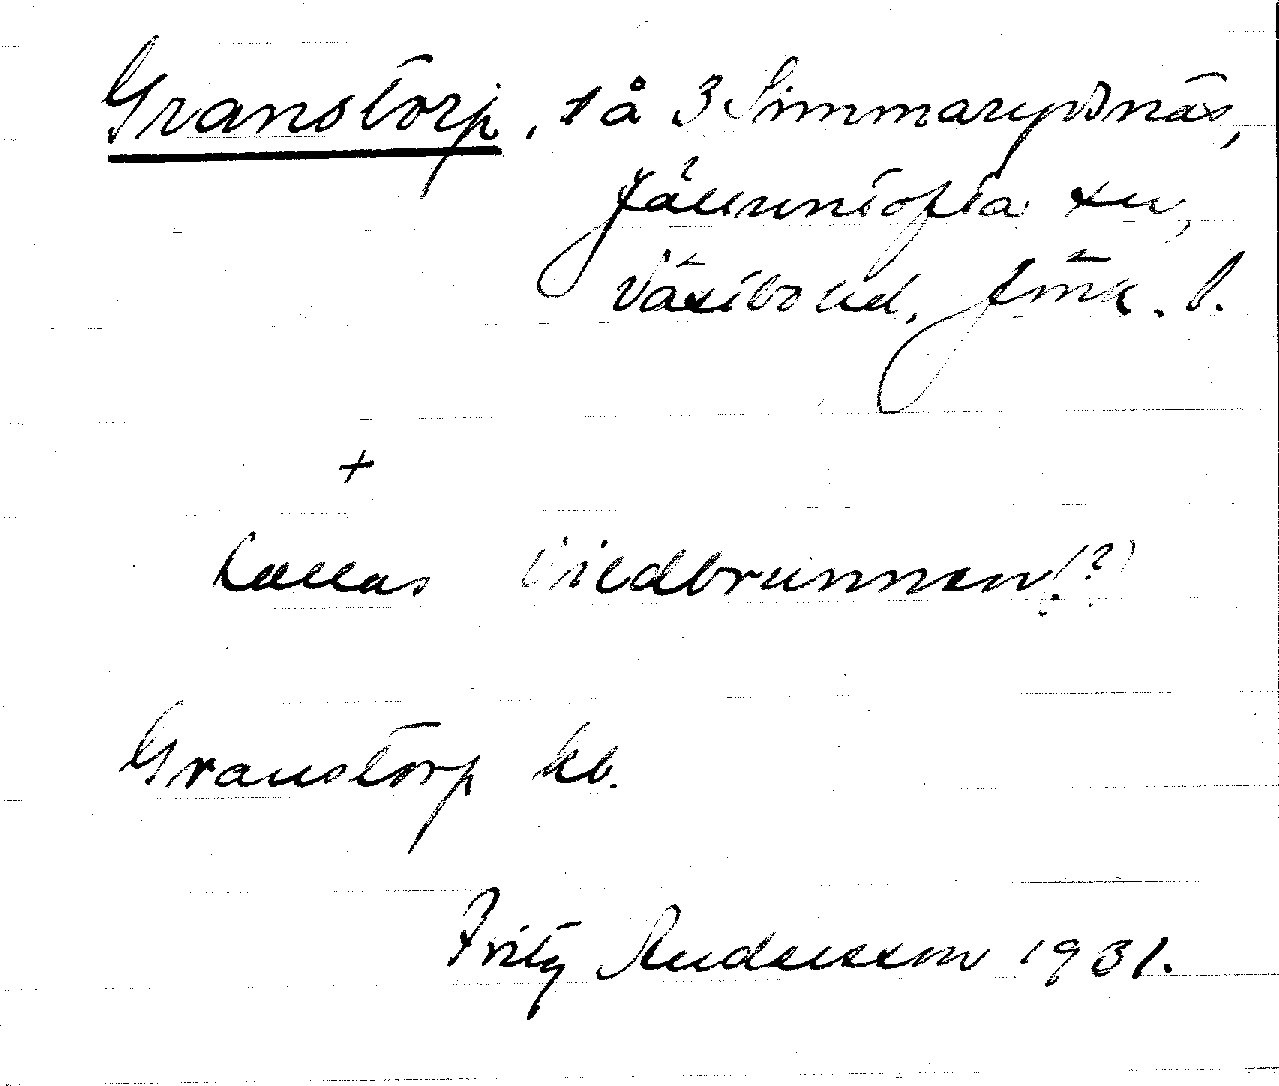 Granstorp, t å 3 Simmarydsnäs,
Jälluntofta sn,
Västbo hd, Jmk. l.
+
kallas Vildbrunnen(?)
Granstorp kb.
Fritz Andersson 1931.